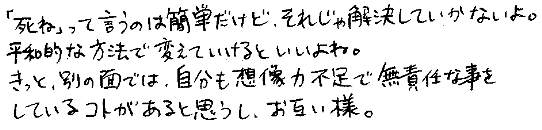 「死ね」って言うのは簡単だけど、それじゃ解決していかないよ。
平和的な方法で変えていけるといいよね。
きっと、別の面では、自分も想像力不足で無責任な事を
しているコトがあると思うし、お互い様。